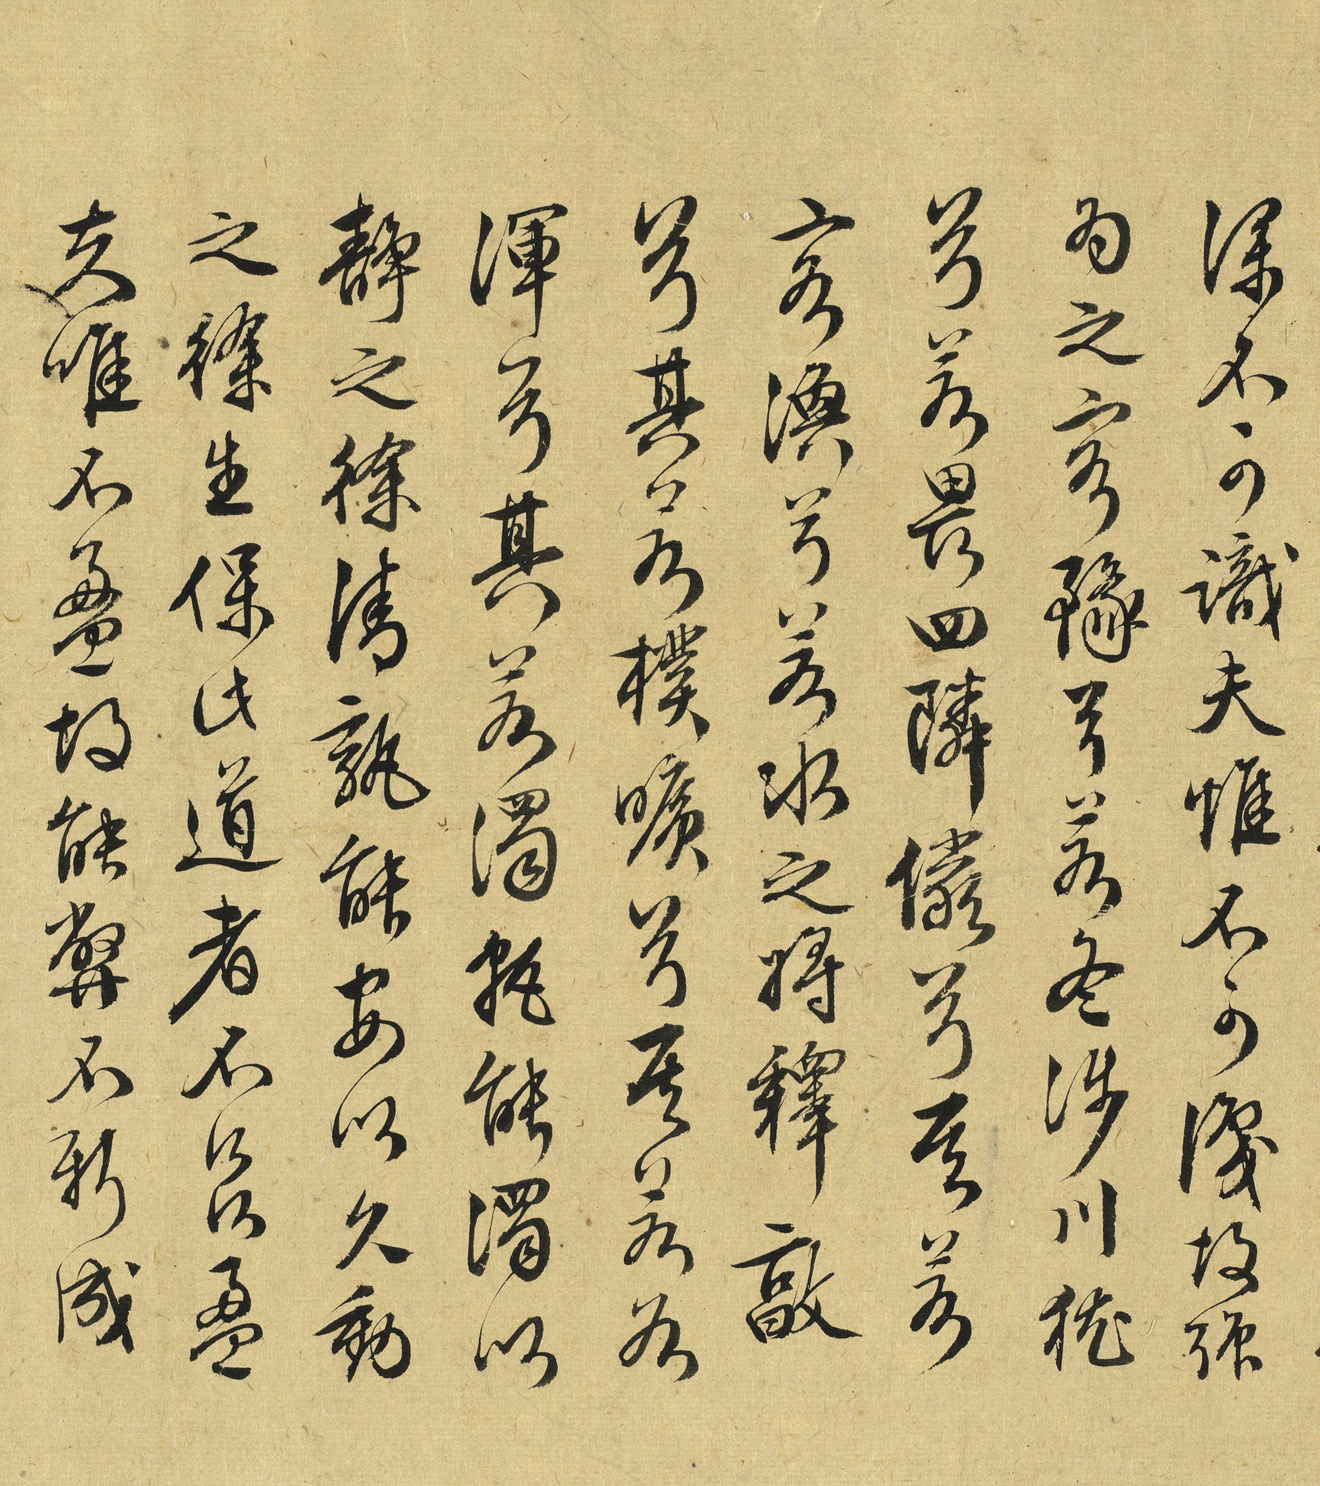 深不可識夫惟不可識故強
為之容豫兮若冬涉川猶
兮若畏四隣儼兮其若
客渙兮若冰之將釋敦
兮其若樸曠兮其若谷
渾兮其若濁孰能濁以
靜之徐清孰能安以久動
之徐生保此道者不欲盈
夫唯不盈故能弊不新成